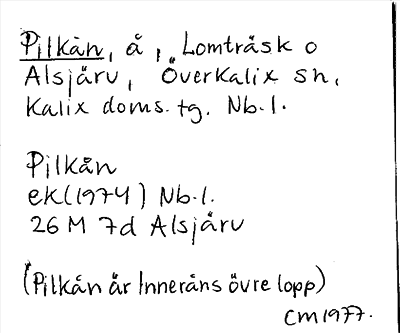 Pilkån, å, Lomträsk o
Alsjärv, Överkalix sn,
Kalix doms. tg. Nb. l.
Pilkån
ek(1974) Nb. l.
26 M 7d Alsjärv
(Pilkån är Inneråns övre lopp)
CM 1977.